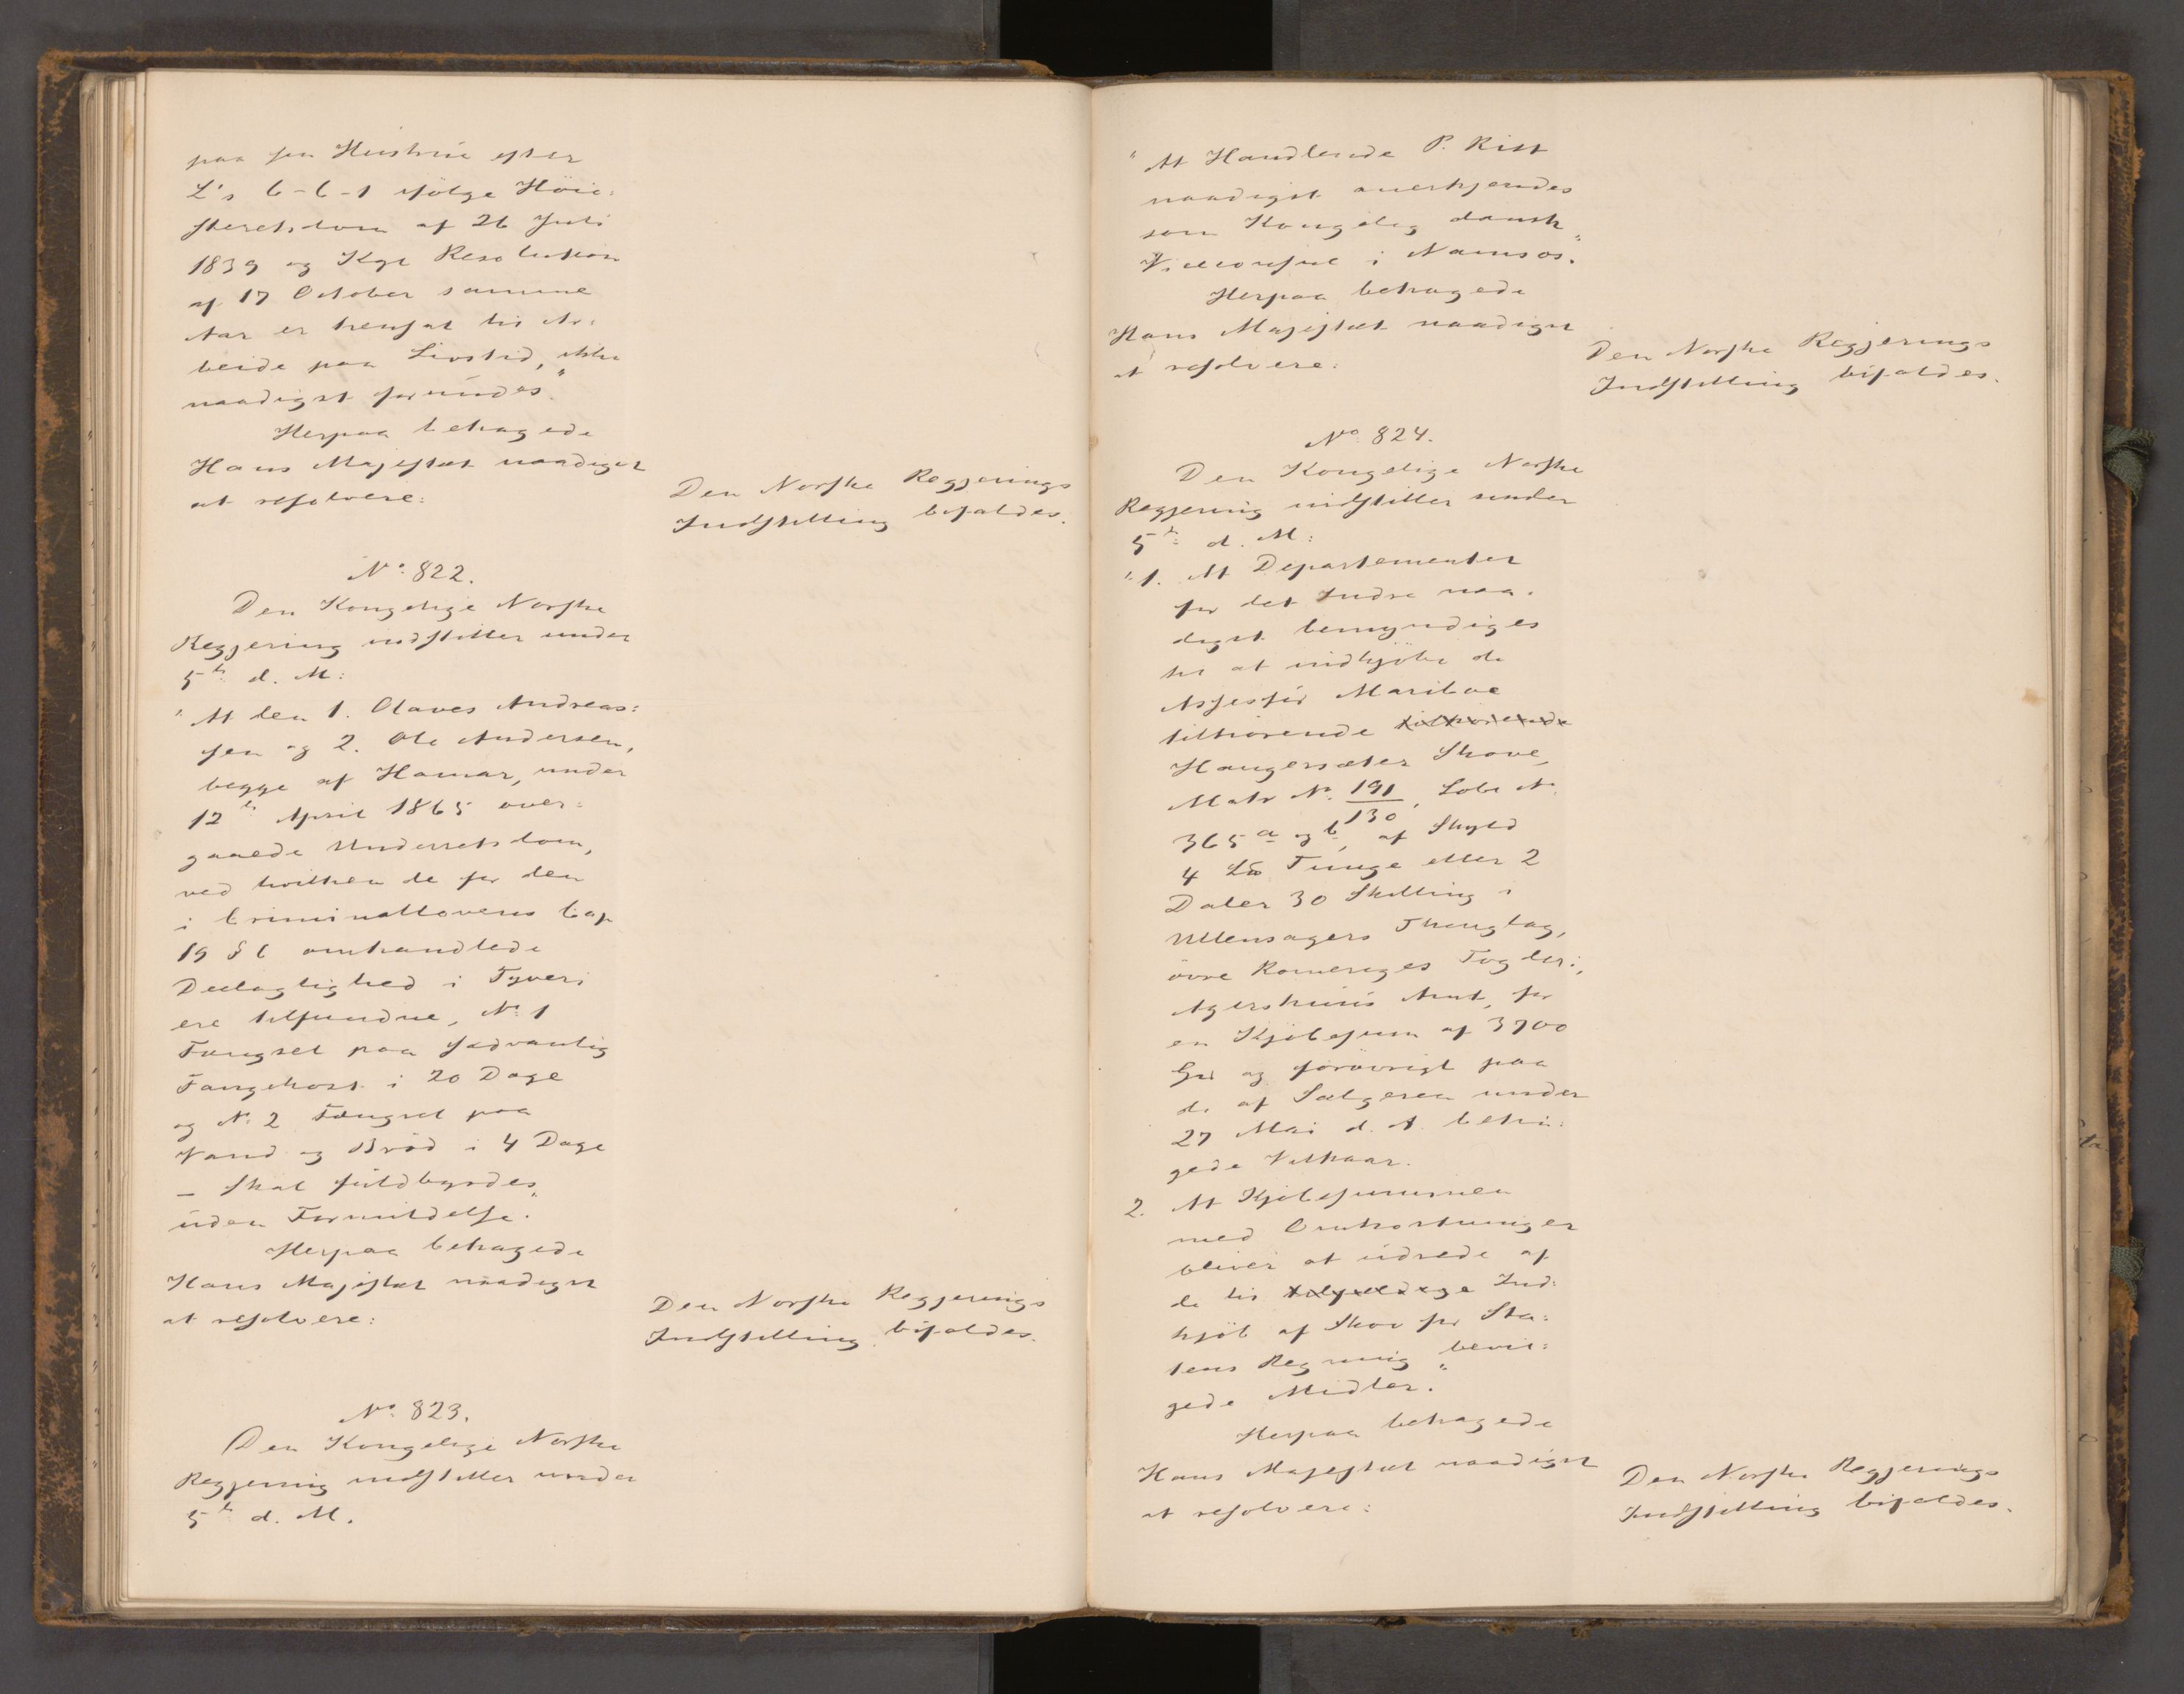 paa sin Hustrue efter
L's 6-6-1 ifölge Höie:
steretsdom af 26 Juli
1839 og Kgl Resolution
af 17 October samme
Aar er hensat til Ar:
beide paa Livstid, ikke
naadigst forundes."
Herpaa behagede
Hans Majestæt naadigst
at resolvere:
Den Norske Regjerings
Indstilling bifaldes.
No 822.
Den Kongelige Norske
Regjering indstiller under
5te d. M:
"At den 1. Olaves Andreas:
sen og 2. Ole Andersen,
begge af Hamar, under
12te April 1865 over:
gaaede Underretsdom,
ved hvilken de for den
i Criminallovens Cap
19 § 6 omhandlede
Deelagtighed i Tyveri
ere tilfundne, No 1
Fængsel paa sædvanlig
Fangekost i 20 Dage
og No 2 Fængsel paa
Vand og Bröd i 4 Dage
– skal fuldbyrdes
uden Formildelse."
Herpaa behagede
Hans Majestæt naadigst
at resolvere:
Den Norske Regjerings
Indstilling bifaldes.
No 823.
Den Kongelige Norske
Regjering indstiller under
5te d. M.
"At Handlende P. Rist
naadigst anerkjendes
som Kongelig dansk
Viceconsul i Namsos."
Herpaa behagede
Hans Majestæt naadigst
at resolvere:
Den Norske Regjerings
Indstilling bifaldes.
No 824.
Den Kongelige Norske
Regjering indstiller under
5te d. M:
"1. At Departementet
for det Indre naa:
digst bemyndiges
til at indkjöbe de
Assessor Mariboe
tilhörende tilhörende
Haugersæter Skove,
Matr No. 191/130, Löbe No
365 a og b, af Skyld
4 Lb Tunge eller 2
Daler 30 Skilling i
Ullensagers Thinglag,
övre Romeriges Fogderi,
Agershuus Amt, for
en Kjöbesum af 3700
Spd og forövrigt paa
de af Sælgeren under
27 Mai d. A. betin:
gede Vilkaar.
2. At Kjöbesummen
med Omkostninger
bliver at udrede af
de til Ind:
kjöb af Skov for Sta:
tens Regning bevil:
gede Midler."
Herpaa behagede
Hans Majestæt naadigst
at resolvere:
Den Norske Regjerings
Indstilling bifaldes.